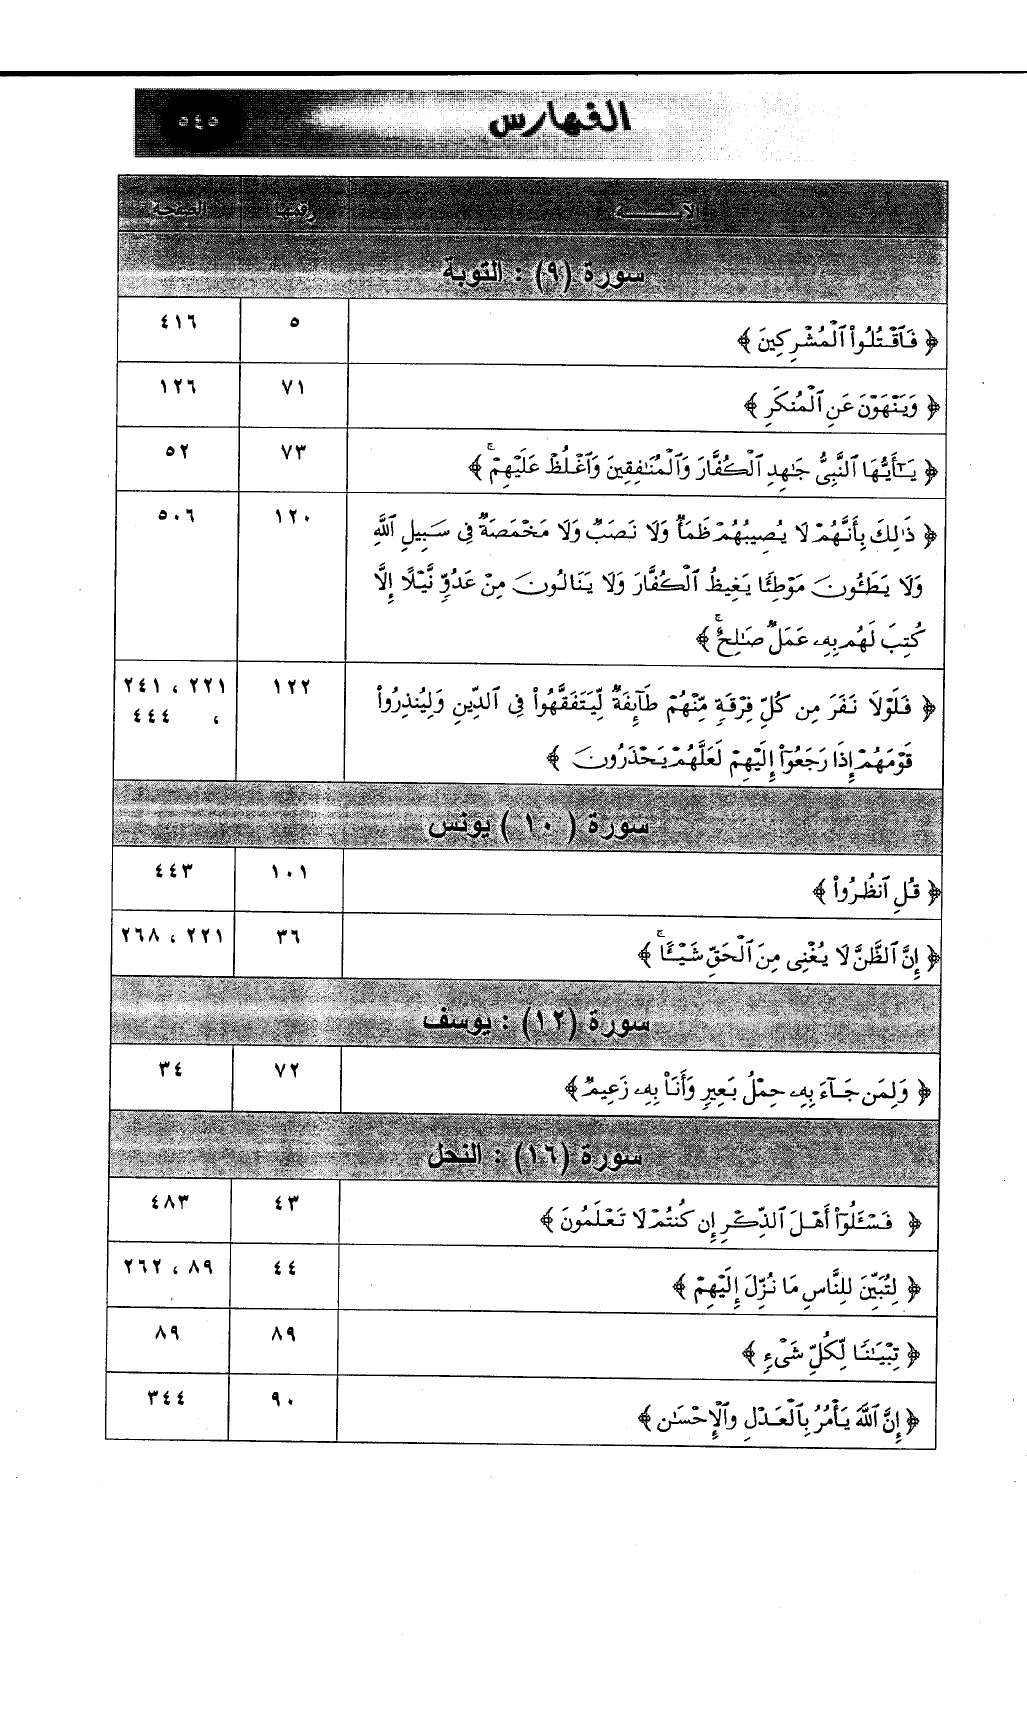 الفهارس ٥٤٥
الآيـــــــة رقمها الصفحة
سورة (٩) : التوبة
﴿ فَٱقْتُلُوا۟ ٱلْمُشْرِكِينَ ﴾ ٥ ٤١٦
﴿ وَيَنْهَوْنَ عَنِ ٱلْمُنكَرِ ﴾ ٧١ ١٢٦
﴿ يَـٰٓأَيُّهَا ٱلنَّبِىُّ جَـٰهِدِ ٱلْكُفَّارَ وَٱلْمُنَـٰفِقِينَ وَٱغْلُظْ عَلَيْهِمْ ۚ ﴾ ٧٣ ٥٢
﴿ ذَٰلِكَ بِأَنَّهُمْ لَا يُصِيبُهُمْ ظَمَأٌ وَلَا نَصَبٌ وَلَا مَخْمَصَةٌ فِى سَبِيلِ ٱللَّهِ ١٢٠ ٥٠٦
وَلَا يَطَـُٔونَ مَوْطِئًا يَغِيظُ ٱلْكُفَّارَ وَلَا يَنَالُونَ مِنْ عَدُوٍّ نَّيْلًا إِلَّا
كُتِبَ لَهُم بِهِۦ عَمَلٌ صَـٰلِحٌ ۚ ﴾
﴿ فَلَوْلَا نَفَرَ مِن كُلِّ فِرْقَةٍ مِّنْهُمْ طَآئِفَةٌ لِّيَتَفَقَّهُوا۟ فِى ٱلدِّينِ وَلِيُنذِرُوا۟ ١٢٢ ٢٢١ ، ٢٤١
، ٤٤٤
قَوْمَهُمْ إِذَا رَجَعُوٓا۟ إِلَيْهِمْ لَعَلَّهُمْ يَحْذَرُونَ ﴾
سورة ( ١٠ ) يونس
﴿ قُلِ ٱنظُرُوا۟ ﴾ ١٠١ ٤٤٣
﴿ إِنَّ ٱلظَّنَّ لَا يُغْنِى مِنَ ٱلْحَقِّ شَيْـًٔا ۚ ﴾ ٣٦ ٢٢١ ، ٢٦٨
سورة (١٢) : يوسف
﴿ وَلِمَن جَآءَ بِهِۦ حِمْلُ بَعِيرٍ وَأَنَا۠ بِهِۦ زَعِيمٌ ﴾ ٧٢ ٣٤
سورة (١٦) : النحل
﴿ فَسْـَٔلُوٓا۟ أَهْلَ ٱلذِّكْرِ إِن كُنتُمْ لَا تَعْلَمُونَ ﴾ ٤٣ ٤٨٣
﴿ لِتُبَيِّنَ لِلنَّاسِ مَا نُزِّلَ إِلَيْهِمْ ﴾ ٤٤ ٨٩ ، ٢٦٢
﴿ تِبْيَـٰنًا لِّكُلِّ شَىْءٍ ﴾ ٨٩ ٨٩
﴿ إِنَّ ٱللَّهَ يَأْمُرُ بِٱلْعَدْلِ وَٱلْإِحْسَـٰنِ ﴾ ٩٠ ٣٤٤